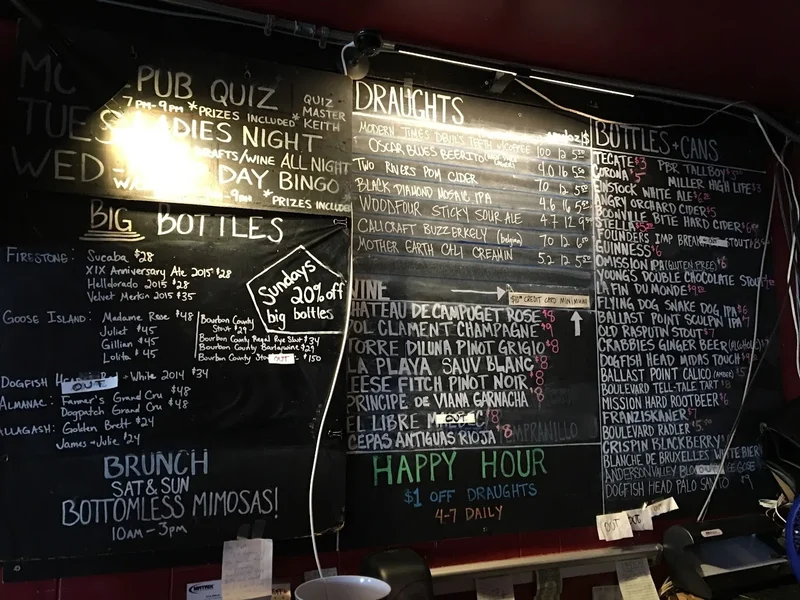 PUB QUIZ
7PM-9PM *PRIZES INCLUDED*
QUIZ
MASTER
KEITH
TUES LADIES NIGHT
DRAFTS/WINE ALL NIGHT
WED DAY BINGO
*PRIZES INCLUDED
BIG BOTTLES
FIRESTONE: Sucaba $28
XIX Anniversary Ale 2015 $28
Helldorado 2015 $28
Velvet Merkin 2015 $35
Sundays
20% off
big bottles
GOOSE ISLAND: Madame Rose $48
Juliet $45
Gillian $45
Lolita $45
Bourbon County
Stout $29
Bourbon County Regal Rye Stout $34
Bourbon County Barleywine $29
Bourbon County OUT $150
DOGFISH OUT White 2014 $34
ALMANAC: Farmer's Grand Cru $48
Dogpatch Grand Cru $48
ALLAGASH: Golden Brett $24
James + Julie $24
BRUNCH
SAT & SUN
BOTTOMLESS MIMOSAS!
10AM-3PM
DRAUGHTS
MODERN TIMES DEVIL'S TEETH W/COFFEE
OSCAR BLUES BEERITO
TWO RIVERS POM CIDER
BLACK DIAMOND MOSAIC IPA
WOODFOUR STICKY SOUR ALE
CALICRAFT BUZZERKELY
MOTHER EARTH CALI CREAMIN 5.2 12
WINE
$10 CREDIT CARD MINIMUM
CHATEAU DE CAMPUGET ROSE $8
POL CLAMENT CHAMPAGNE $9
TORRE DILUNA PINOT GRIGIO $8
LA PLAYA SAUV BLANC $8
LEESE FITCH PINOT NOIR $8
PRINCIPE DE VIANA GARNACHA $8
EL LIBRE OUT $8
CEPAS ANTIGUAS RIOJA $8 TEMPRANILLO
HAPPY HOUR
$1 OFF DRAUGHTS
4-7 DAILY
BOTTLES + CANS
TECATE $3 PBR TALLBOY
CORONA $5 MILLER HIGH LIFE $3
EINSTOCK WHITE ALE
ANGRY ORCHARD CIDER $5
BOONVILLE BITE HARD CIDER
STELLA
FOUNDERS IMP
GUINNESS $6
OMISSION IPA (GLUTEN FREE) $6
YOUNGS DOUBLE CHOCOLATE STOUT
LA FIN DU MONDE
FLYING DOG SNAKE DOG IPA $6
BALLAST POINT SCULPIN IPA $7
OLD RASPUTIN STOUT $7
CRABBIES GINGER BEER
DOGFISH HEAD MIDAS TOUCH
BALLAST POINT CALICO (AMBER) $5
BOULEVARD TELL-TALE TART $8
MISSION HARD ROOTBEER $6
FRANZISKANER $7
BOULEVARD RADLER
CRISPIN BLACKBERRY
BLANCHE DE BRUXELLES WHITE BIER
ANDERSON VALLEY GOSE
DOGFISH HEAD PALO SANTO $9
OUT OUT